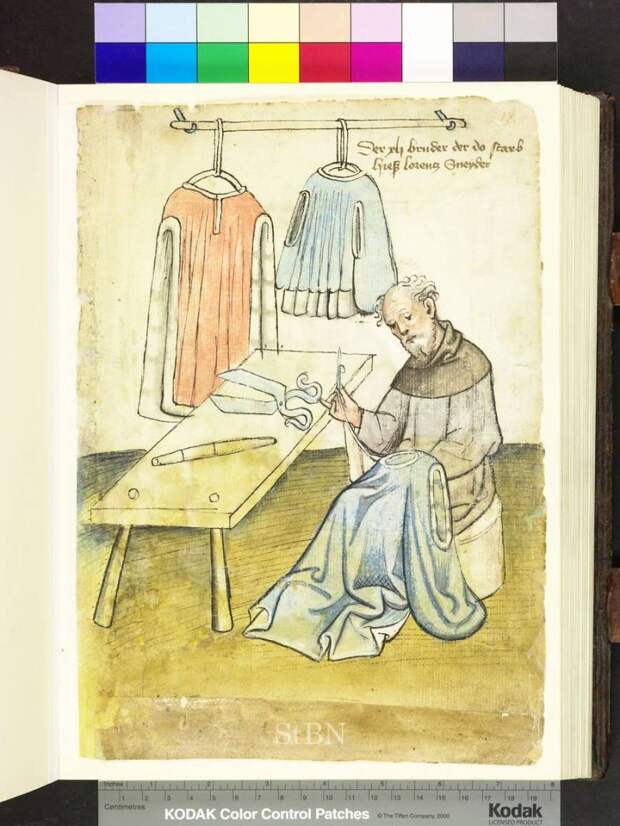 Der xlj bruder der do starb
hieß lorencz Sneyder
StBN
Inches 1 2 3 4 5 6 7 8
Centimetres 1 2 3 4 5 6 7 8 9 10 11 12 13 14 15 16 17 18 19
KODAK Color Control Patches © The Tiffen Company, 2000 Kodak
LICENSED PRODUCT